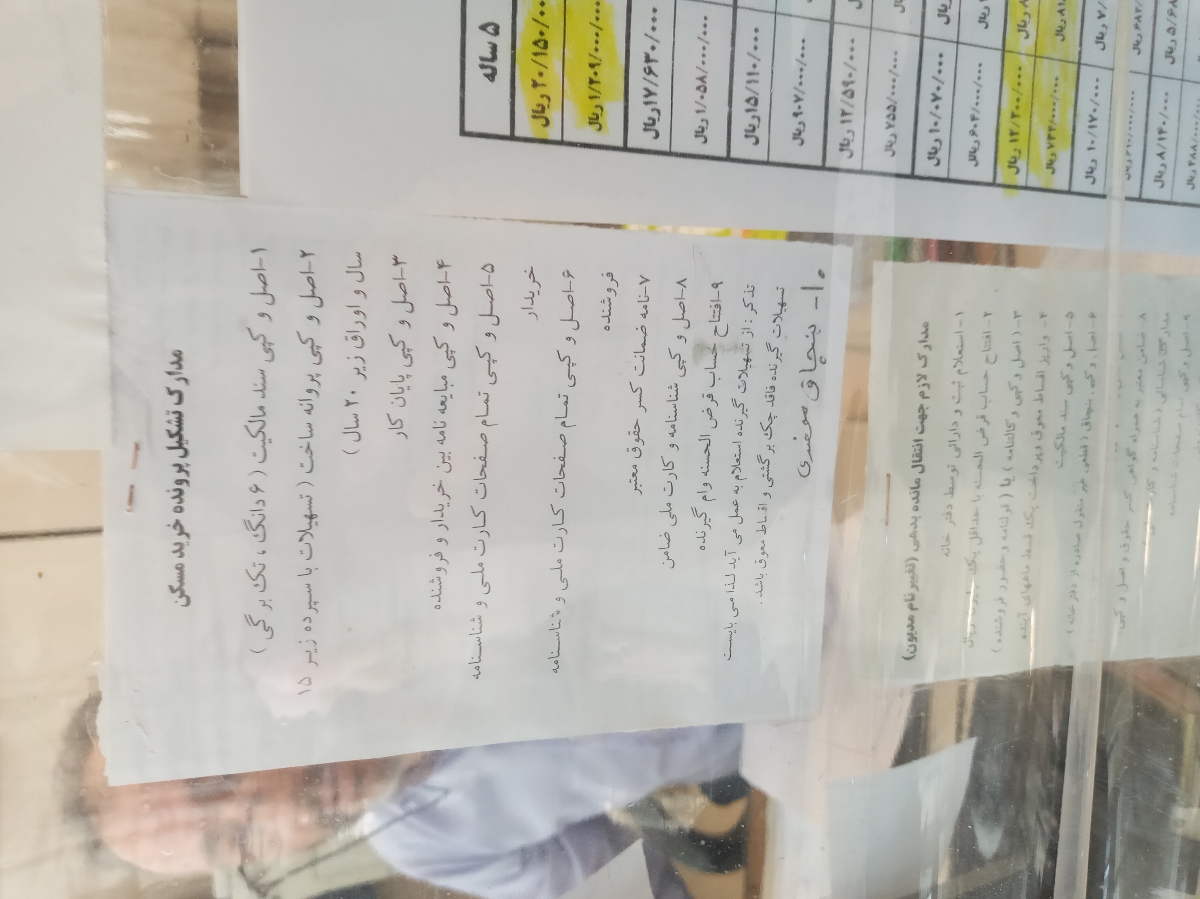 مدارک تشکیل پرونده خرید مسکن
۱-اصل و کپی سند مالکیت ( ۶ دانگ ، تک برگی )
۲-اصل و کپی پروانه ساخت ( تسهیلات با سپرده زیر ۱۵
سال و اوراق زیر ۲۰ سال )
۳-اصل و کپی پایان کار
۴-اصل و کپی مبایعه نامه بین خریدار و فروشنده
۵-اصل و کپی تمام صفحات کارت ملی و شناسنامه
خریدار
۶-اصل و کپی تمام صفحات کارت ملی و شناسنامه
فروشنده
۷-نامه ضمانت کسر حقوق معتبر
۸-اصل و کپی شناسنامه و کارت ملی ضامن
۹-افتتاح حساب قرض الحسنه وام گیرنده
تذکر : از تسهیلات گیرنده استعلام به عمل می آید لذا می بایست
تسهیلات گیرنده فاقد چک برگشتی و اقساط معوق باشد .
۱۰- بنچاق محضری
۵ ساله
۲۰/۱۵۰/۰۰ ریال
۱/۲۰۹/۰۰۰/۰۰۰ ریال
۱۷/۶۳۰/۰۰۰ ریال
۱/۰۵۸/۰۰۰/۰۰۰ ریال
۱۵/۱۱۰/۰۰۰ ریال
۹۰۷/۰۰۰/۰۰۰ ریال
۱۲/۵۹۰/۰۰۰ ریال
۷۵۵/۰۰۰/۰۰۰ ریال
۱۰/۰۷۰/۰۰۰ ریال
۶۰۴/۰۰۰/۰۰۰ ریال
۱۲/۲۰۰/۰۰۰ ریال
۷۳۲/۰۰۰/۰۰۰ ریال
۱۰/۱۷۰/۰۰۰ ریال
۸/۱۴۰/۰۰۰ ریال
مدارک لازم جهت انتقال مانده بدهی (تغییر نام مدیون)
۱-استعلام ثبت و دارائی توسط دفتر خانه
۲-افتتاح حساب قرض الحسنه با حداقل یک ریال
۳-اصل و کپی وکالتنامه ) یا ( قولنامه و حضور فروشنده )
۴-واریز اقساط معوق و پرداخت یک قسط ماههای آینده
۵-اصل و کپی سند مالکیت
۶-اصل و کپی بنچاق ( قطعی غیر منقول صادره از دفتر خانه )
۸-ضامن معتبر به همراه گواهی کسر حقوق و اصل و کپی